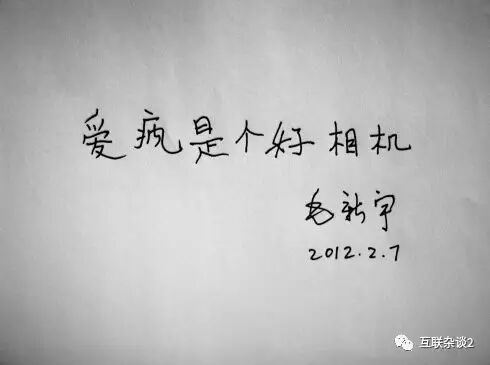 爱疯是个好相机
毛新宇
2012.2.7
互联杂谈2